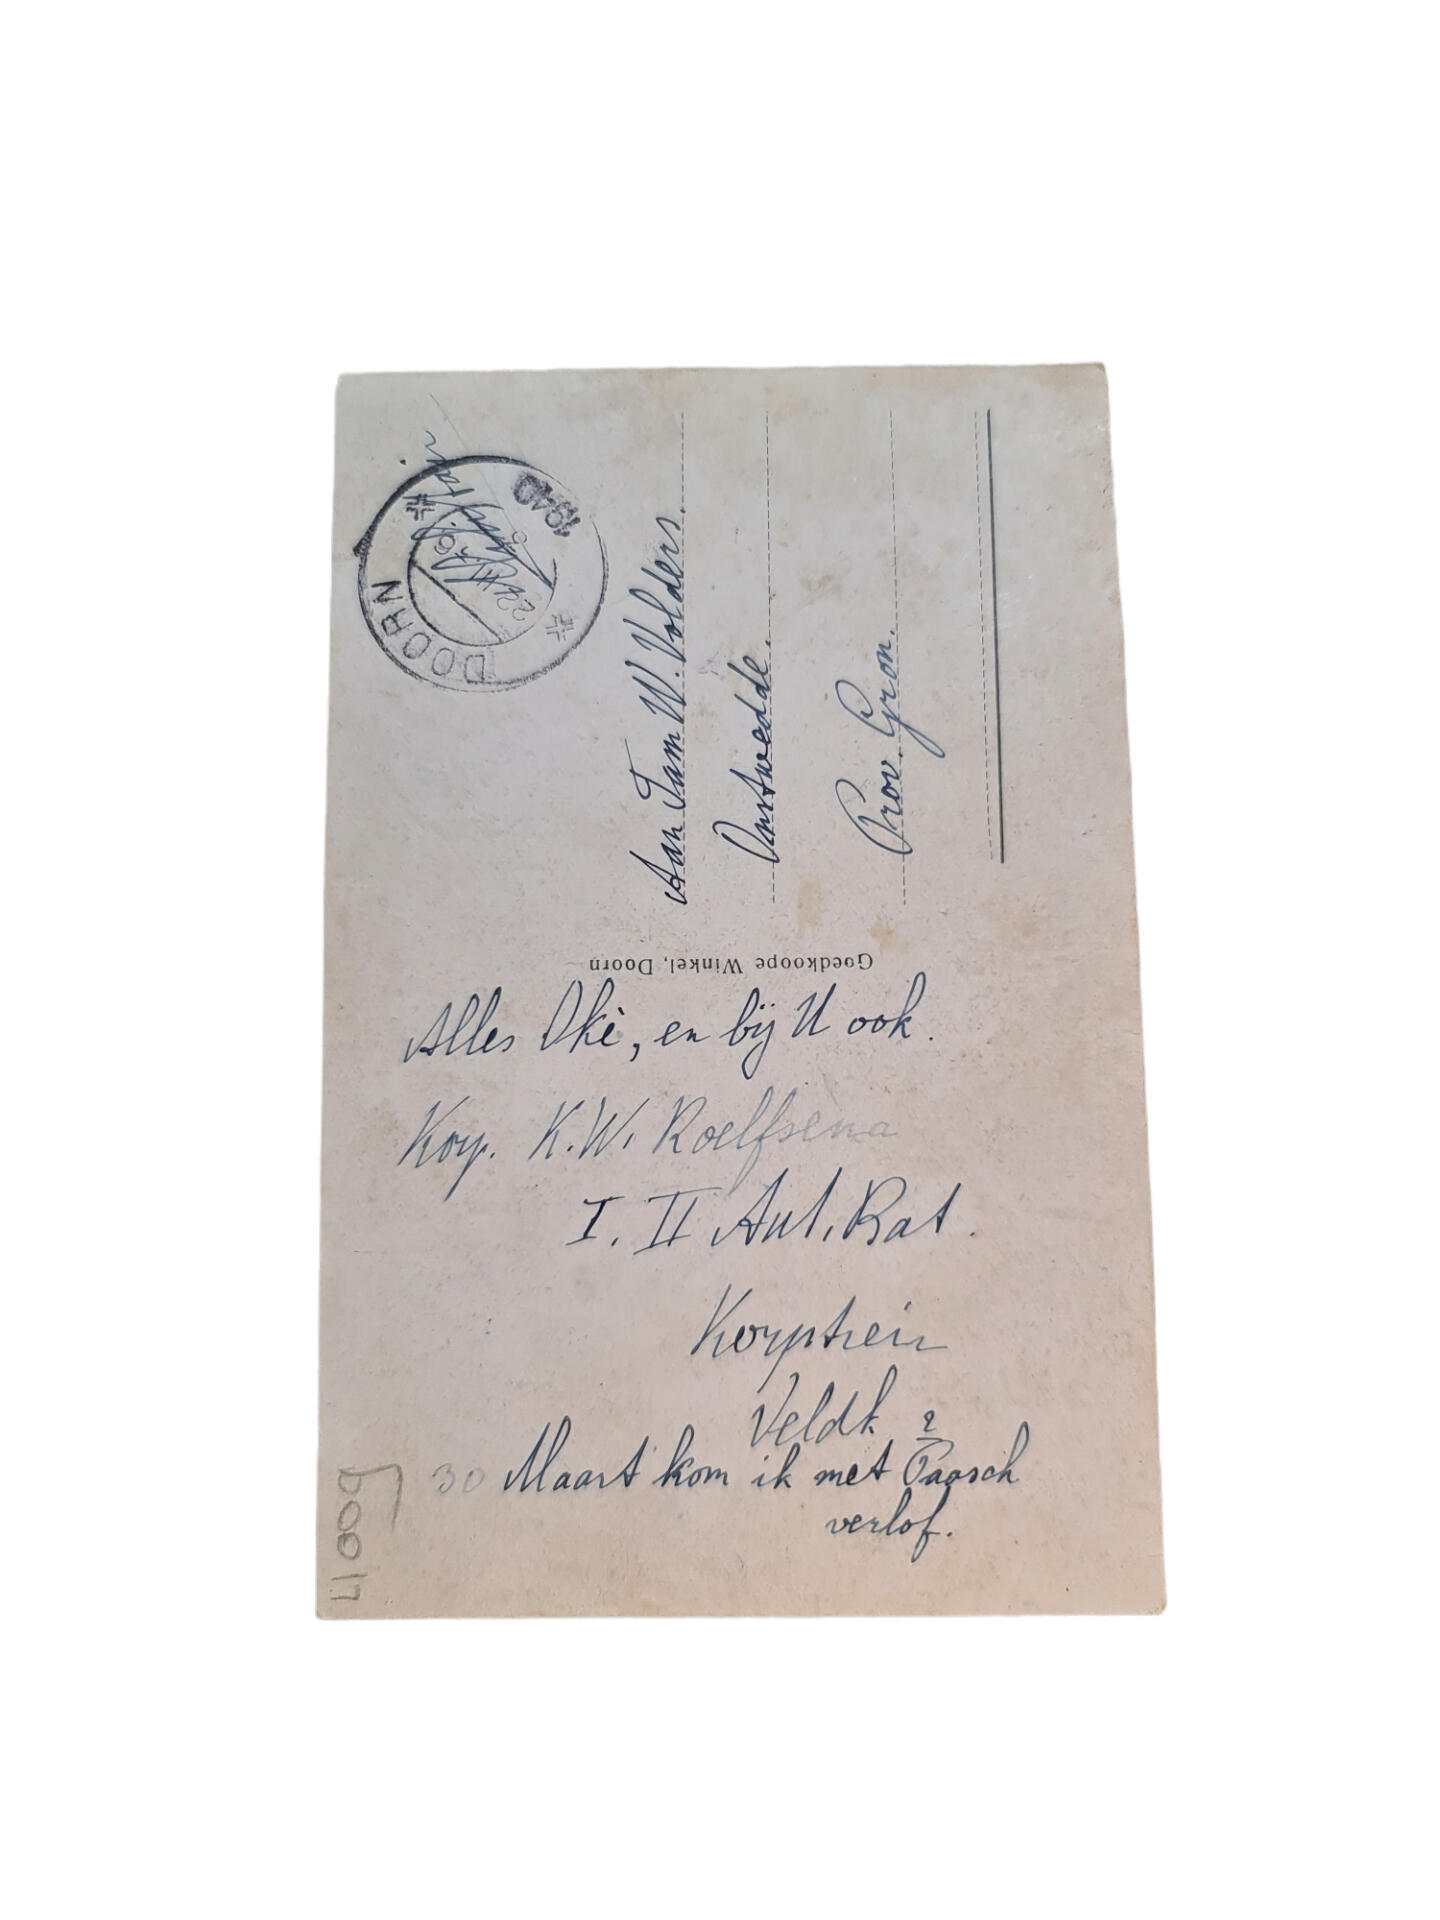 DOORN
1940
Aan Fam W. Volders.
Onstwedde.
Prov. Gron.
Goedkoope Winkel, Doorn
Alles Okè, en bij U ook.
Korp. K.W. Roelfsema
I. II Aut. Bat.
Korptrein
Veldk
30 Maart kom ik met Paasch
verlof.